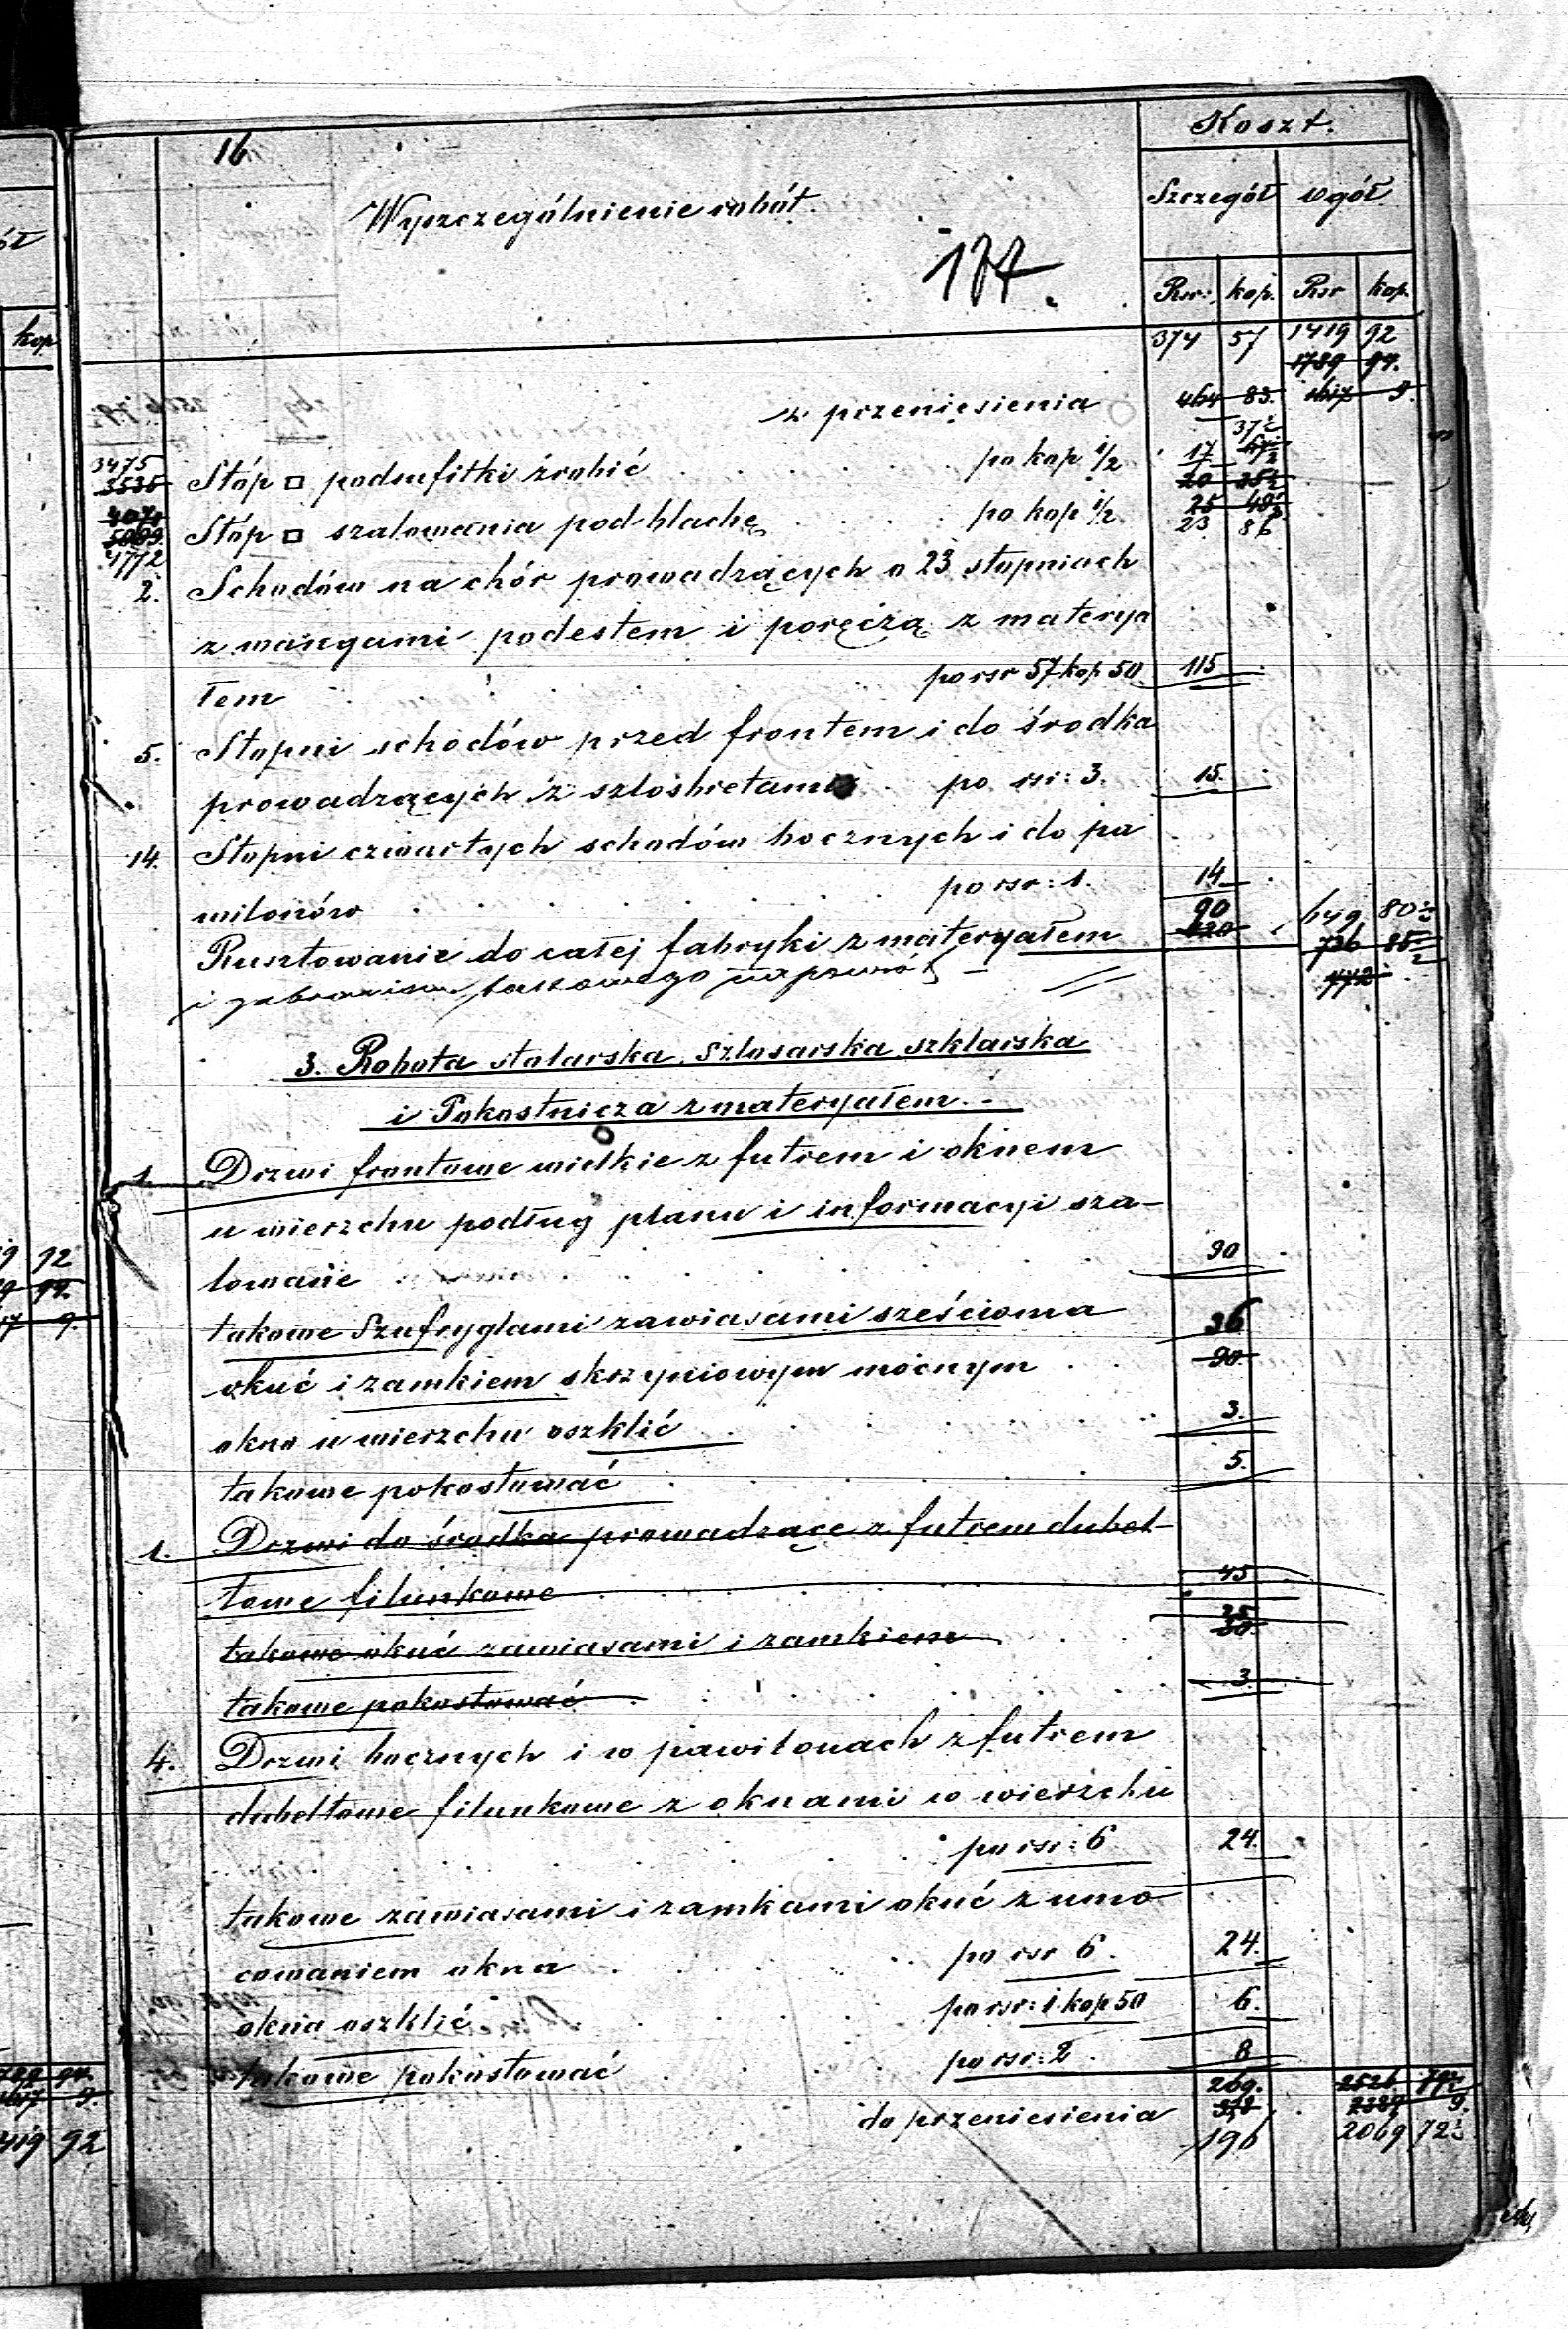 16
Koszt.
Wyszczególnienie robót.
Szczegół ogół
177.
Rsr: kop. Rsr kop.
374 57 1419 92
1789 94.
z przeniesienia 464 83. 1617 9.
37 ½
3475
3535 Stóp □ podsufitki zrobić . . . . . po kop ½ 17 67 ½
20 25 ½
4071
5089. Stóp □ szalowania pod blachę . . . . po kop ½ 25 49 ½
1772 23 86
2. Schodów na chór prowadzących o 23 stopniach
z wangami podestem i poręczą z materya
łem . . . . . po rsr 57 kop 50 115
5. Stopni schodów przed frontem i do środka
prowadzących z szlosbretami . po rsr: 3. 15.
14. Stopni czwartych schodów bocznych i do pa
wilonów . . . . . po rsr: 1. 14
90 649 80 ½
Rusztowanie do całej fabryki z materyałem 120 736 85 ½
i zabraniem takowego napowrót 442
3. Robota stolarska, szlosarska szklarska
i Pokostnicza z materyałem.
1. Drzwi frontowe wielkie z futrem i oknem
u wierzchu podług planu i informacyi sza-
lowane . . . . . 90
takowe Szufryglami zawiasami sześcioma 36
okuć i zamkiem skrzyniowym mocnym . . 90
okno u wierzchu oszklić . . . . . 3.
takowe pokostować . . . . . 5.
1. Drzwi do środka prowadzące z futrem dubel-
towe filunkowe . . . . . 45
25
takowe okuć zawiasami i zamkiem . . . 30
takowe pokostować . . . . . 3.
4. Drzwi bocznych i w pawilonach z futrem
dubeltowe filunkowe z oknami w wierzchu
po rsr: 6 24.
takowe zawiasami i zamkami okuć z umo
cowaniem okna . . . . po rsr 6. 24.
okna oszklić . . . . po rsr: 1. kop 50 6.
takowe pokostować . . . . po rsr: 2. 8
269. 2526 79 ½
do przeniesienia 318 2387 9.
196 2069 72 ½